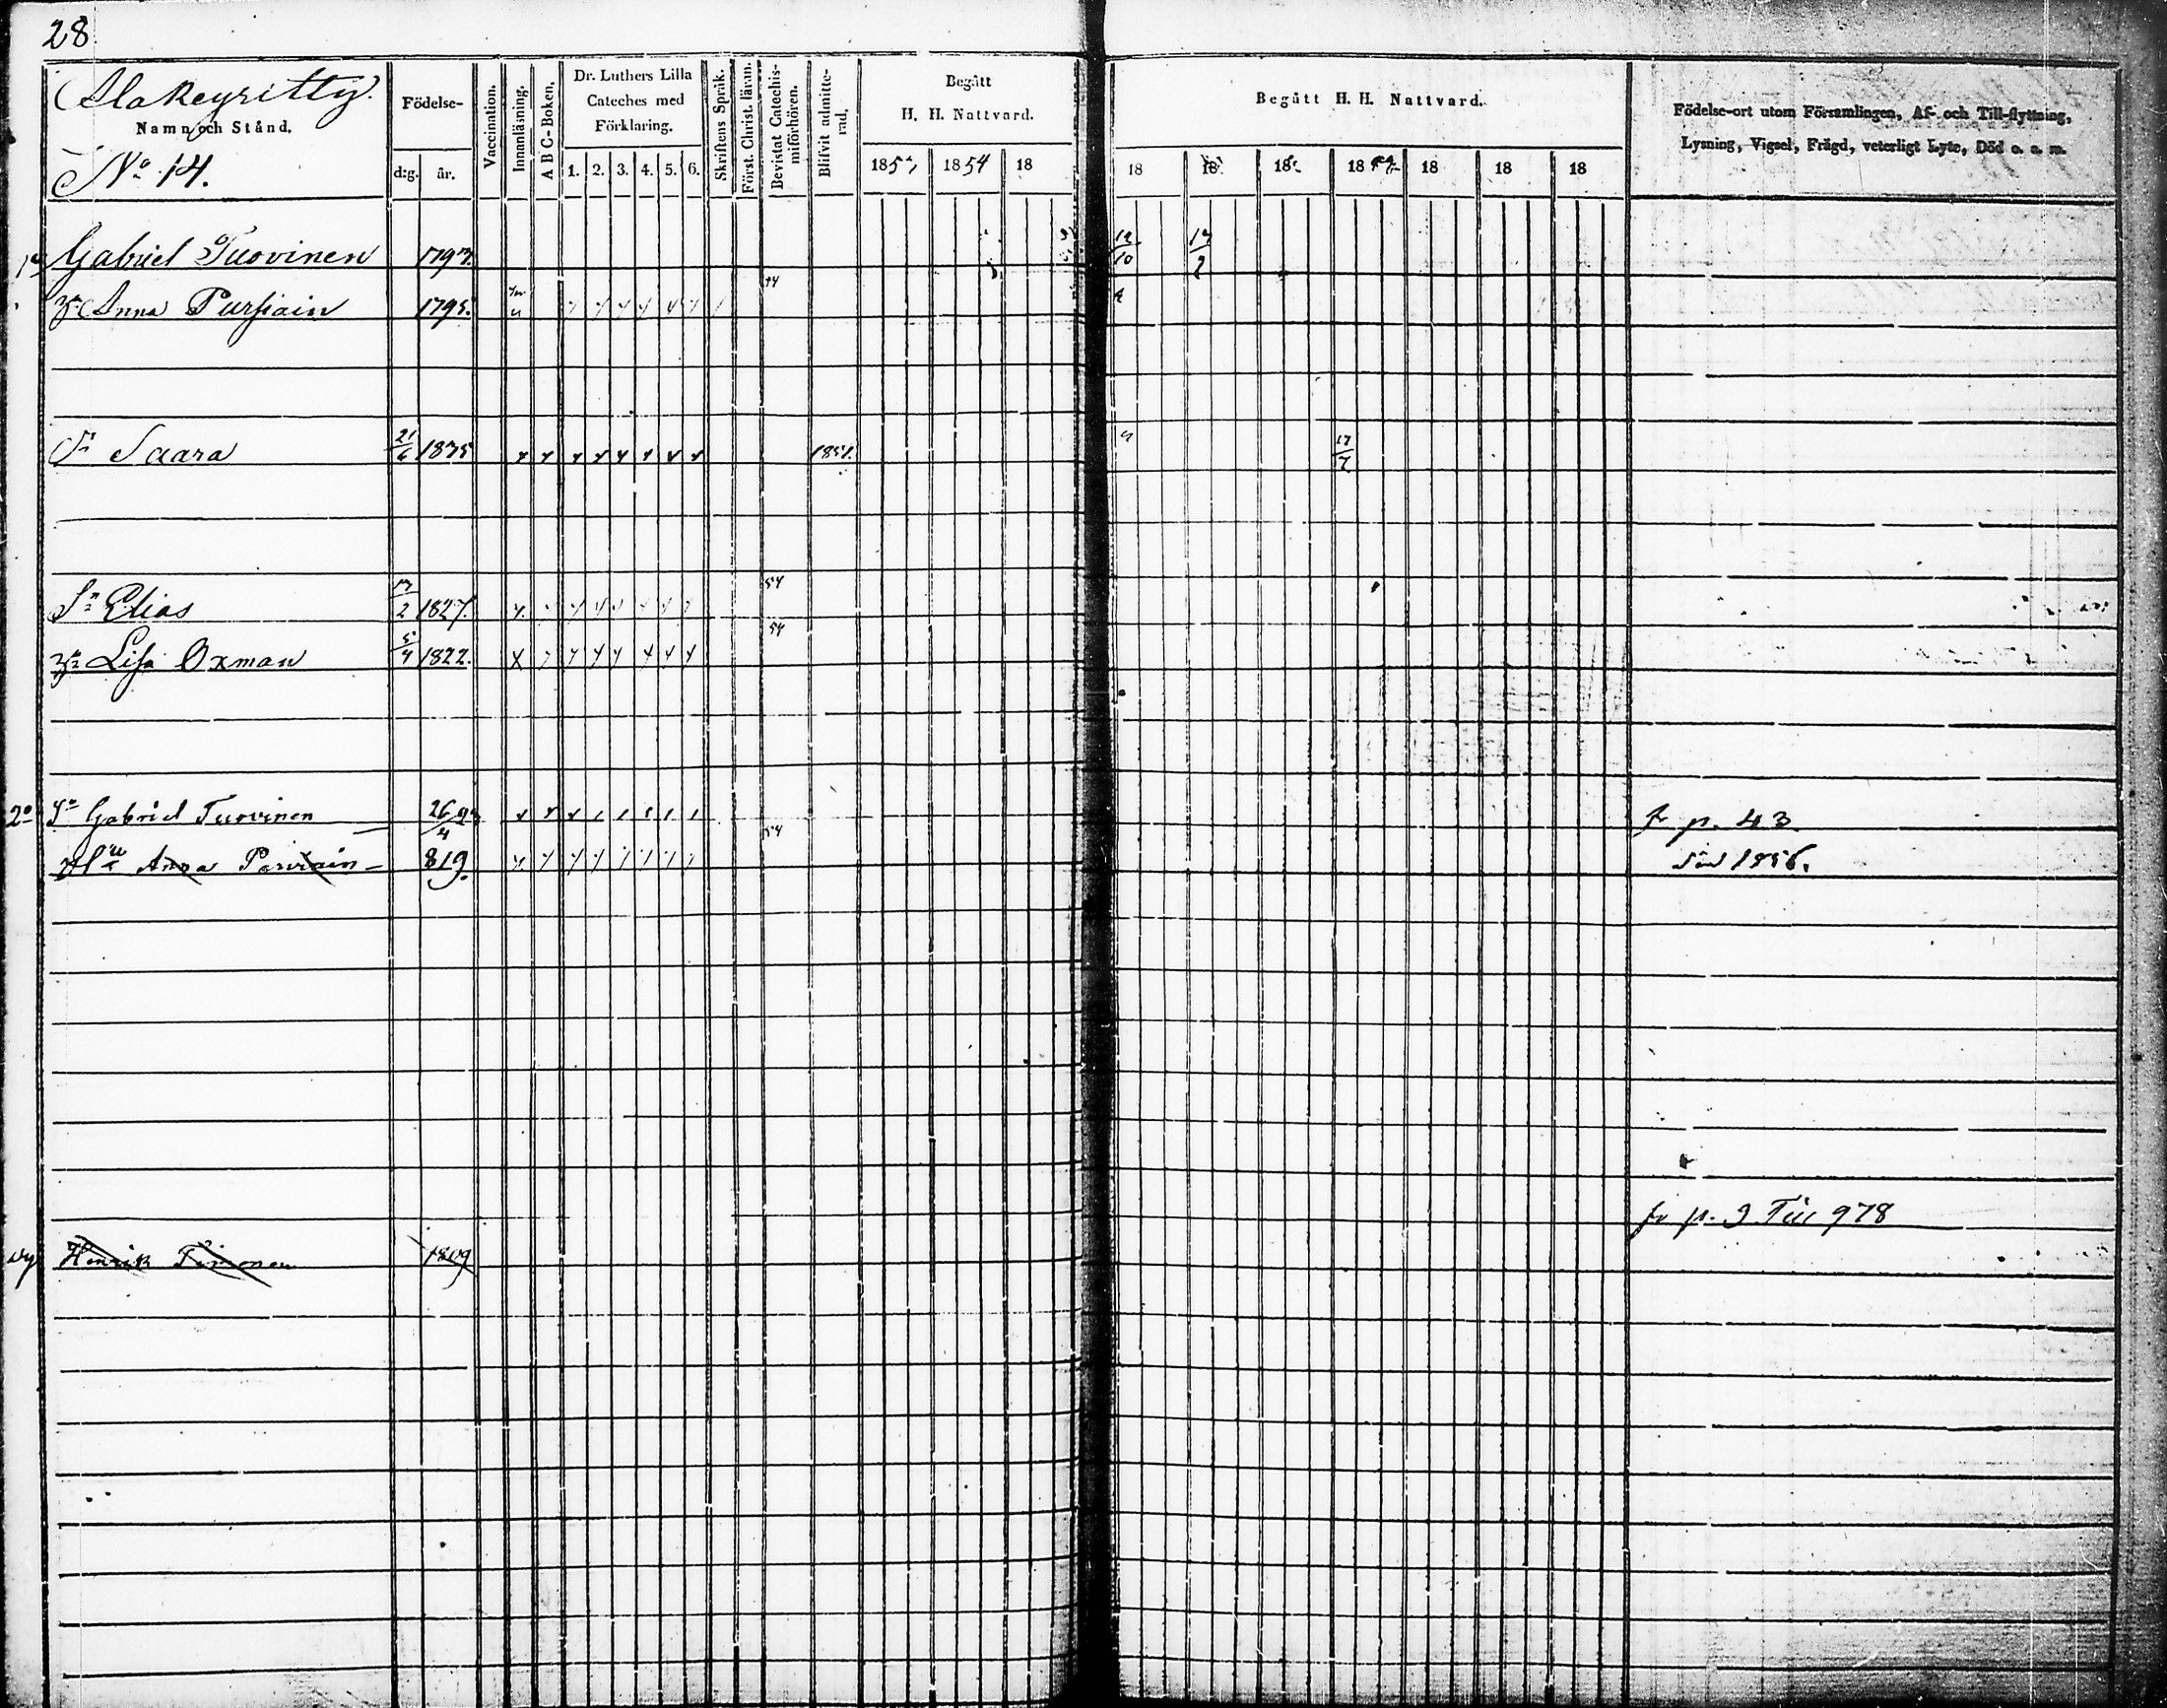 28
Alakeyritty.
Namn och Stånd.
No 14.
Födelse-
d:g. år.
Vaccination.
Innanläsning.
A B C-Boken.
Dr. Luthers Lilla
Cateches med
Förklaring.
1. 2. 3. 4. 5. 6.
Skriftens Språk.
Först. Christ. läran.
Bevistat Catechis-
miförhören.
Blifvit admitte-
rad.
Begått
H. H. Nattvard.
1854 18
Begått H. H. Nattvard.
18 18 18 18 18 18 18
Födelse-ort utom Församlingen, Af- och Till-flyttning,
Lysning, Vigsel, Frägd, veterligt Lyte, Död o. s. m.
Gabriel Tuovinen 1797. 12/10
Anna Pursiain 1795.
Saara 21/6 1835 1851. 17/7
Sn Elias 2 1827. 54
Lisa Oxman 5/4 1822. 54
2o Sn Gabriel Tuovinen 26/4 fr p. 43
Anna Parviain 819. 54 död 1856.
fr p. 9 Till 978
Henrik Timonen 1809